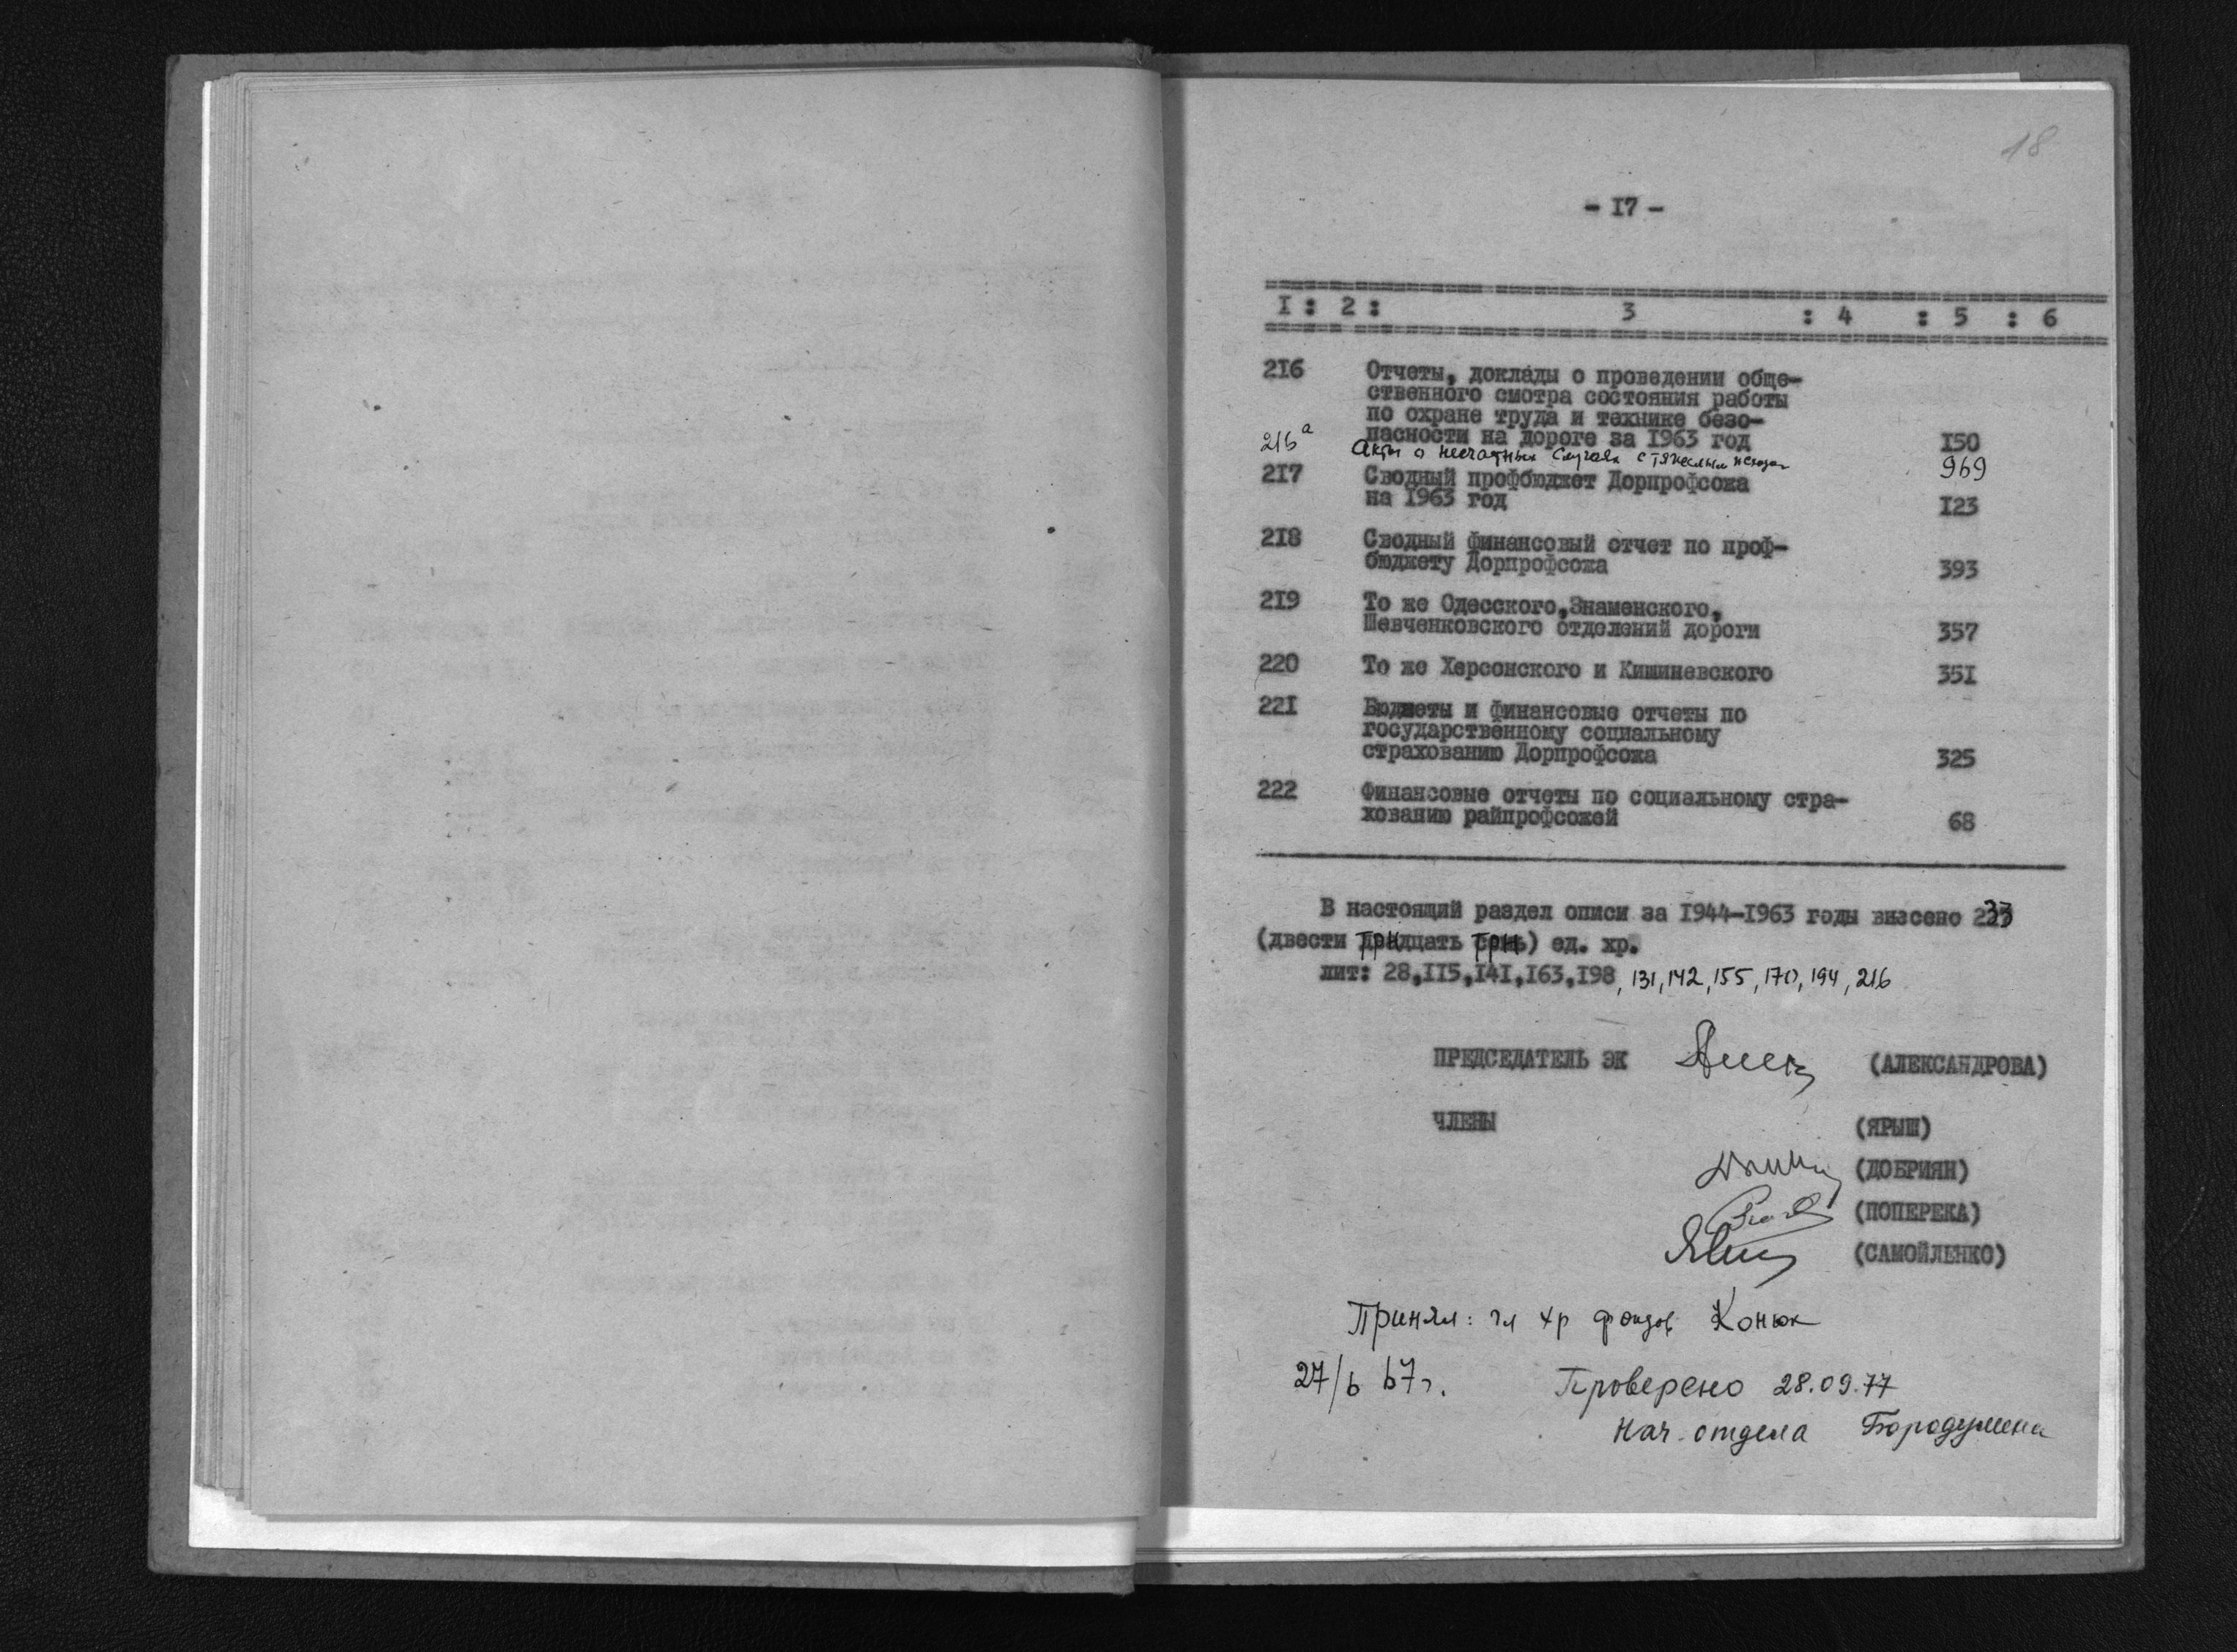 18
- I7 -
I : 2 : 3 : 4 : 5 : 6
216 Отчеты, доклады о проведении обще-
ственного смотра состояния работы
по охране труда и технике безо-
пасности на дороге за 1963 год I50
216а Акты о несчастных случаях с тяжелым исходом 969
217 Сводный профбюджет Дорпрофсожа
на 1963 год I23
218 Сводный финансовый отчет по проф-
бюджету Дорпрофсожа 393
219 То же Одесского,Знаменского,
Шевченковского отделений дороги 357
220 То же Херсонского и Кишиневского 35I
22I Бюджеты и финансовые отчеты по
государственному социальному
страхованию Дорпрофсожа 325
222 Финансовые отчеты по социальному стра-
хованию райпрофсожей 68
В настоящий раздел описи за 1944-1963 годы внесено 233
(двести тридцать три) ед. хр.
лит: 28,II5,I4I,I63,I98, 131, 142, 155, 170, 194, 216
ПРЕДСЕДАТЕЛЬ ЭК (АЛЕКСАНДРОВА)
ЧЛЕНЫ (ЯРЫШ)
(ДОБРИЯН)
(ПОПЕРЕКА)
(САМОЙЛЕНКО)
Принял: гл хр фондов Конюк
27/6 67г. Проверено 28.09.77
Нач. отдела